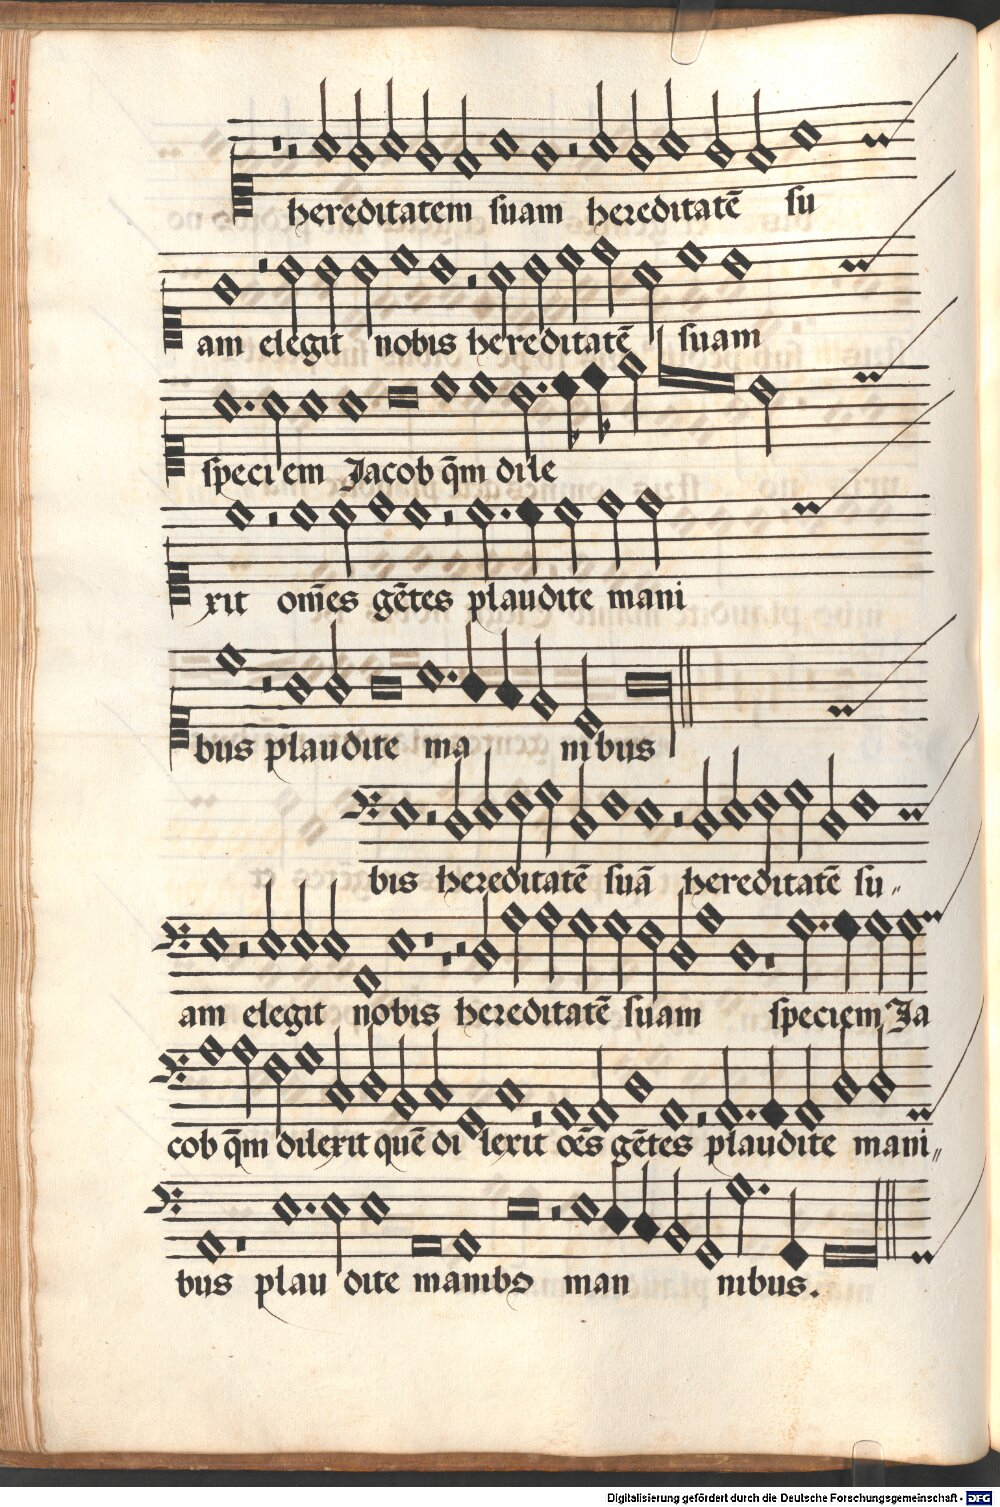 hereditatem suam hereditatē su
am elegit nobis hereditatē suam
speciem Jacob q̄m dile
xit om̄es gētes plaudite mani
bus plaudite ma nibus
bis hereditatē suā hereditatē su〃
am elegit nobis hereditatē suam speciem Ja
cob q̄m dilexit quē di lexit oēs gētes plaudite mani〃
bus plau dite manibo man nibus.
Digitalisierung gefördert durch die Deutsche Forschungsgemeinschaft - DFG